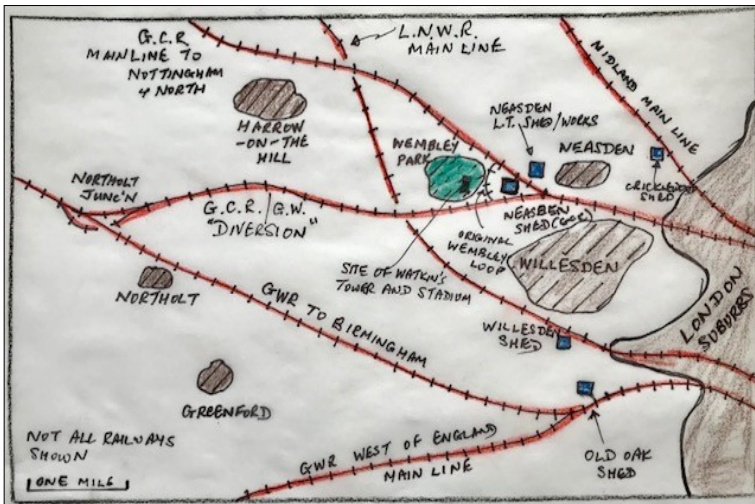 G.C.R.
MAINLINE TO
NOTTINGHAM
& NORTH
L.N.W.R.
MAIN LINE
MIDLAND MAIN LINE
HARROW
-ON-THE
HILL
WEMBLEY
PARK
NEASDEN
L.T. SHED/WORKS
NEASDEN
CRICKLEWOOD
SHED
NORTHOLT
JUNC'N
G.C.R./G.W.
"DIVERSION"
NEASDEN
SHED (GCR)
ORIGINAL
WEMBLEY
LOOP
SITE OF WATKIN'S
TOWER AND STADIUM
WILLESDEN
NORTHOLT
GWR TO BIRMINGHAM
WILLESDEN
SHED
LONDON
SUBURBS
GREENFORD
NOT ALL RAILWAYS
SHOWN
ONE MILE
GWR WEST OF ENGLAND
MAIN LINE
OLD OAK
SHED